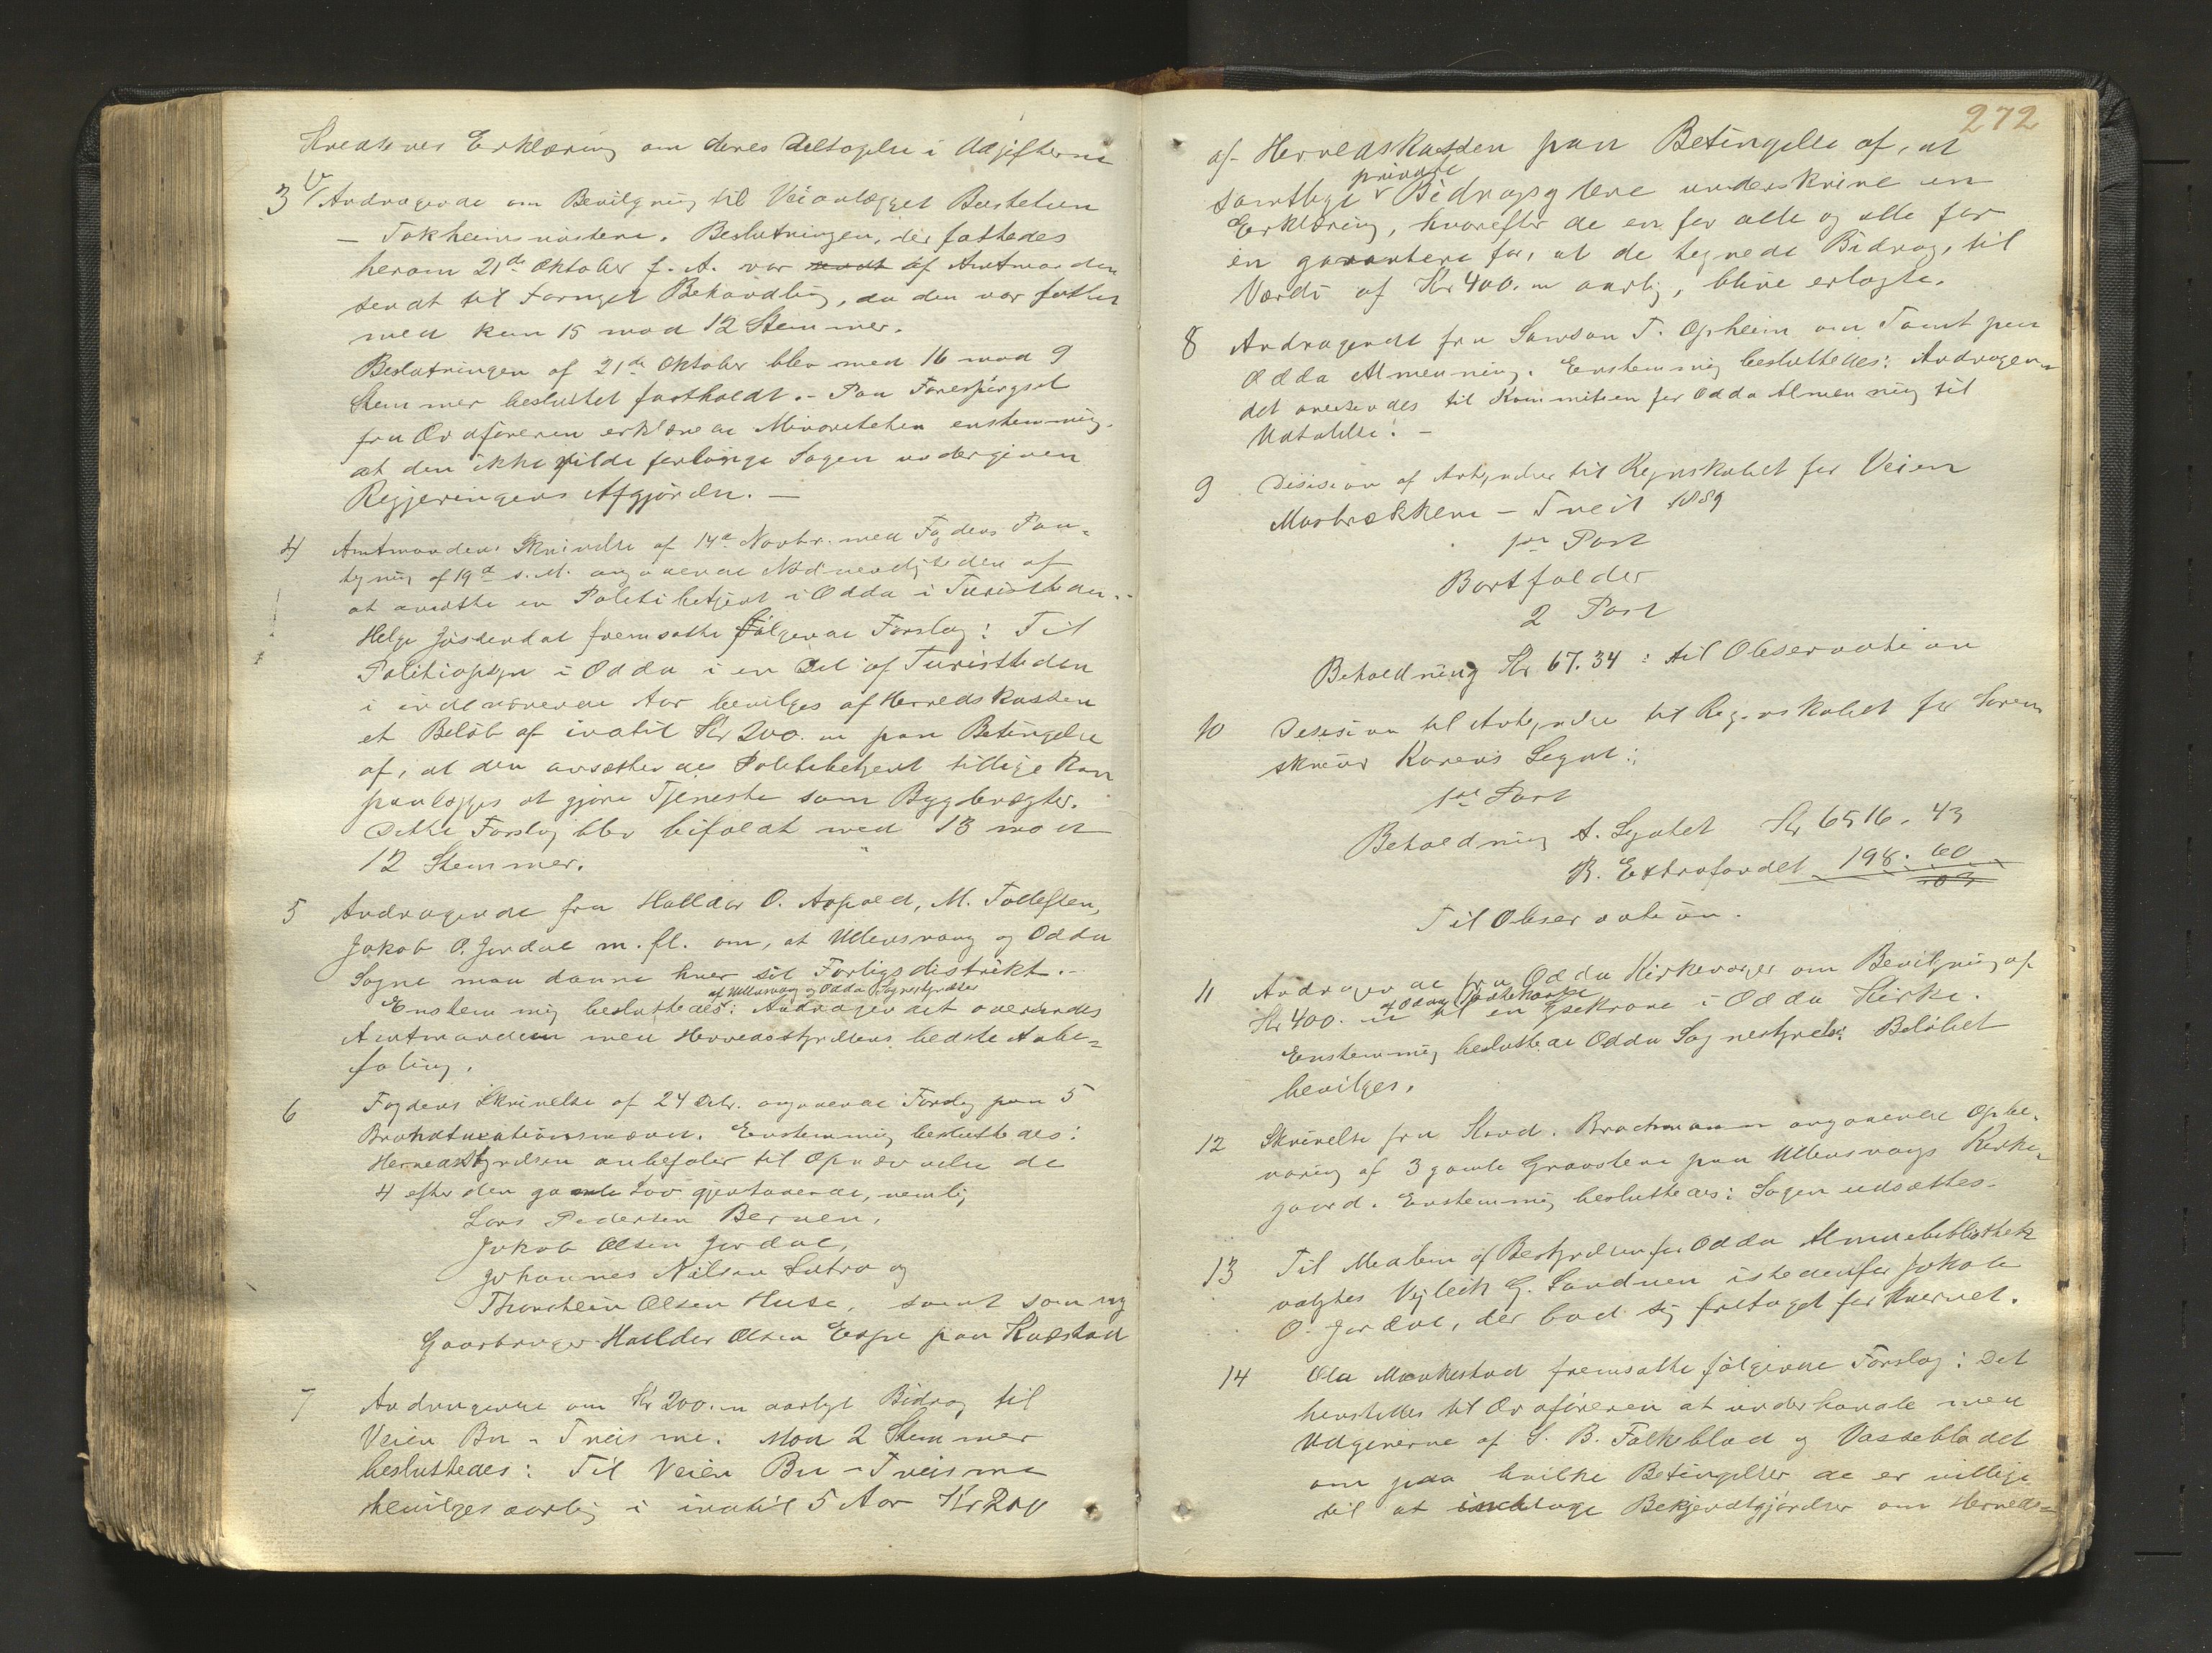 Kredsenes Erklæring om deres Deltagelse i Udgifterne
3 Andragende om Bevilgning til Veianlægget Bustetun
- Tokheimsnöstene. Beslutningen, der fattedes
herom 21de Oktober f. A. var sendt af Amtmanden
sendt til fornyet Behandling, da den var fattet
med kun 15 mod 12 Stemmer.
Beslutningen af 21de Oktober blev med 16 mod 9
Stemmer besluttet fastholdt. - Paa Forespörgsel
fra Ordföreren erklærede Minoriteten enstemmig,
at den ikke vilde forlange Sagen undergiven
Regjeringens Afgjörelse. -
4 Amtmandens Skrivelse af 14de Novbr. med Fogdens Paa-
tegning af 19de s. M. angaaende Nödvendigheden af
at ansætte en Politibetjent i Odda i Turisttiden. -
Helge Jösendal fremsatte fölgende Forslag: Til
Politiopsyn i Odda i en Del af Turisttiden
i indeværende Aar bevilges af Herredskassen
et Belöb af indtil Kr 200.00 paa Betingelse
af, at den ansættende Politibetjent tillige kan
paalægges at gjöre Tjeneste som Bygdevægter.
Dette Forslag blev bifaldt med 13 mod
12 Stemmer.
5 Andragende fra Halldor O. Aspald, M. Tollefsen,
Jakob O. Jordal m. fl. om, at Ullensvang og Odda
Sogne maa danne hver sit Forligsdistrikt. -
af Ullensvang og Odda Sognestyrelser
Enstemmig besluttedes: Andragendet oversendes
Amtmanden med Herredsstyrelsens bedste Anbe=
faling.
6 Fogdens Skrivelse af 24 Debr. angaaende Forslag paa 5
Brandtaxationsmænd. Enstemmig besluttedes:
Herredsstyrelsen anbefaler til Opnævnelse de
4 efter den gamle Lov gjenstaaende, nemlig
Lars Pedersen Bernen,
Jakob Olsen Jordal,
Johannes Nilsen Lutro og
Thorstein Olsen Huse, samt som ny
Gaardbruger Halldor Olsen Espe paa Kvæstad
7 Andragende om Kr 200.00 aarligt Bidrag til
Veien Bu - Tveisme. Mod 2 Stemmer
besluttedes: Til Veien Bu - Tveisme
bevilges aarlig i indtil 5 Aar Kr 200
272
af Herredskassen paa Betingelse af, at
private
samtlige Bidragsydere underskrive en
Erklæring, hvorefter de en for alle og alle for
en garantere for, at de tegnede Bidrag, til
Værdi af Kr 400.00 aarlig, blive erlagte.
8 Andragende fra Samson T. Opheim om Tomt paa
Odda Almenning. Enstemmig besluttedes: Andragen-
det oversendes til Kommiteen for Odda Almenning til
Udtalelse. -
9 Desision af Antegnelser til Regnskabet for Veien
Maabrækkene - Tveit 1889
1ste Post
Bortfalder
2 Post
Beholdning Kr 67.34: til Observation
10 Desision til Antegnelser til Regnskabet for Soren-
skriver Korens Legat:
1ste Post
Beholdning A. Legatet Kr 6516. 43
B. Extrafondet 198. 60
03
Til Observation.
11 Andragende fra Odda Kirkeværger om Bevilgning af
af Odda Sognekasse
Kr 400. 00 til en Lysekrone i Odda Kirke.
Enstemmig besluttede Odda Sognestyrelse: Belöbet
bevilges.
12 Skrivelse fra Kand. Brochmann angaaende Opbe-
varing af 3 gamle Gravstene paa Ullensvangs Kirke-
gaard. Enstemmig besluttedes: Sagen udsættes.
13 Til Medlem af Bestyrelsen for Odda Almuebibliothek
valgtes Vejleik G. Sandven istedenfor Jakob
O. Jordal, der bad sig fritaget for Hvervet.
14 Ola Mankestad fremsatte fölgende Forslag: Det
henstilles til Ordföreren at underhandle med
Udgiverne af S. B. Folkeblad og Vossebladet
om paa hvilke Betingelser de er villige
til at indtage Bekjendtgjörelser om Herreds=